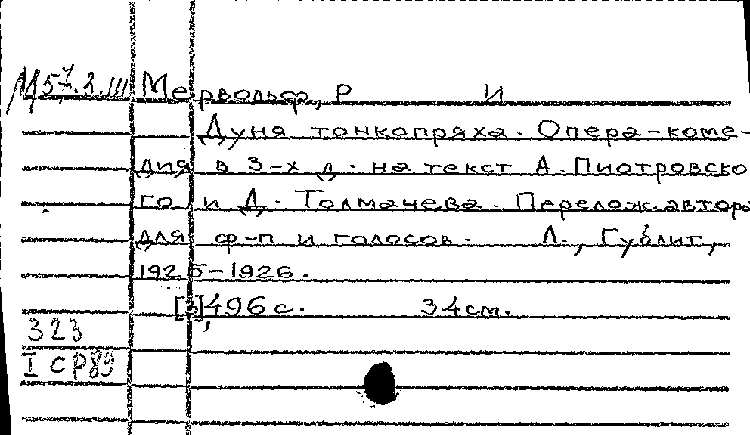 М57.3.III Мервольф, Р И
Дуня тонкопряха. Опера-коме-
дия в 3-х д. на текст А. Пиотровско
го и Д. Толмачева. Перелож. автора
для ф-п и голосов. Л., Гублит,
1925-1926.
[3], 496 с. 34см.
323
I СР89